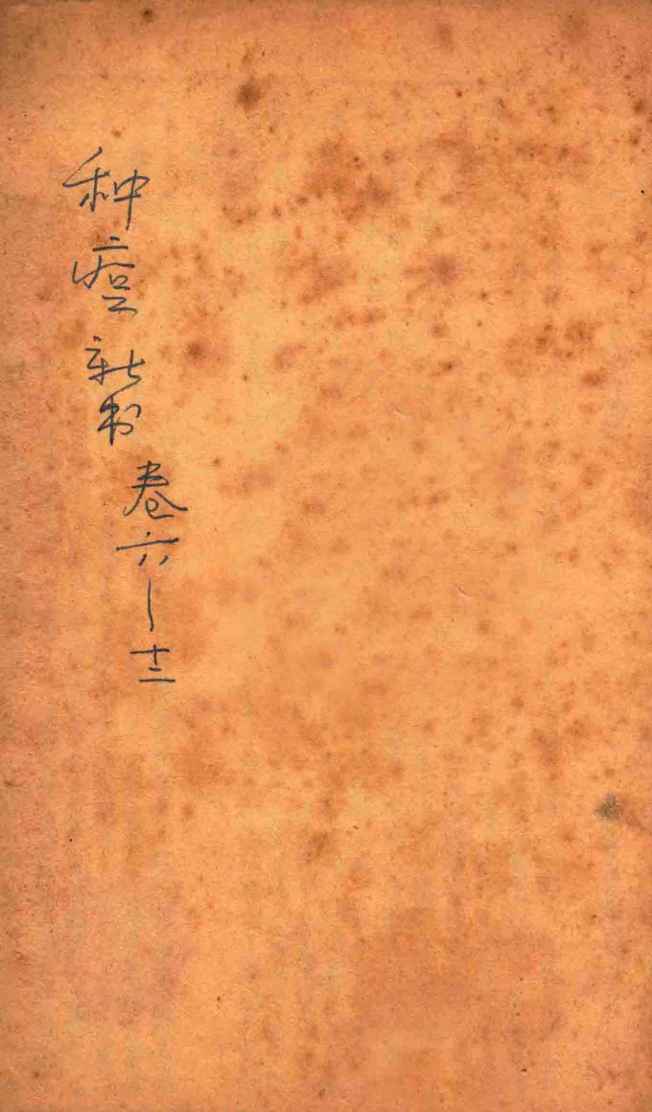 种痘新书卷六—十二